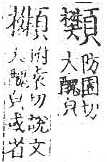 䫶防園切
大醜皃
䫶附袁切說文
大醜皃或省